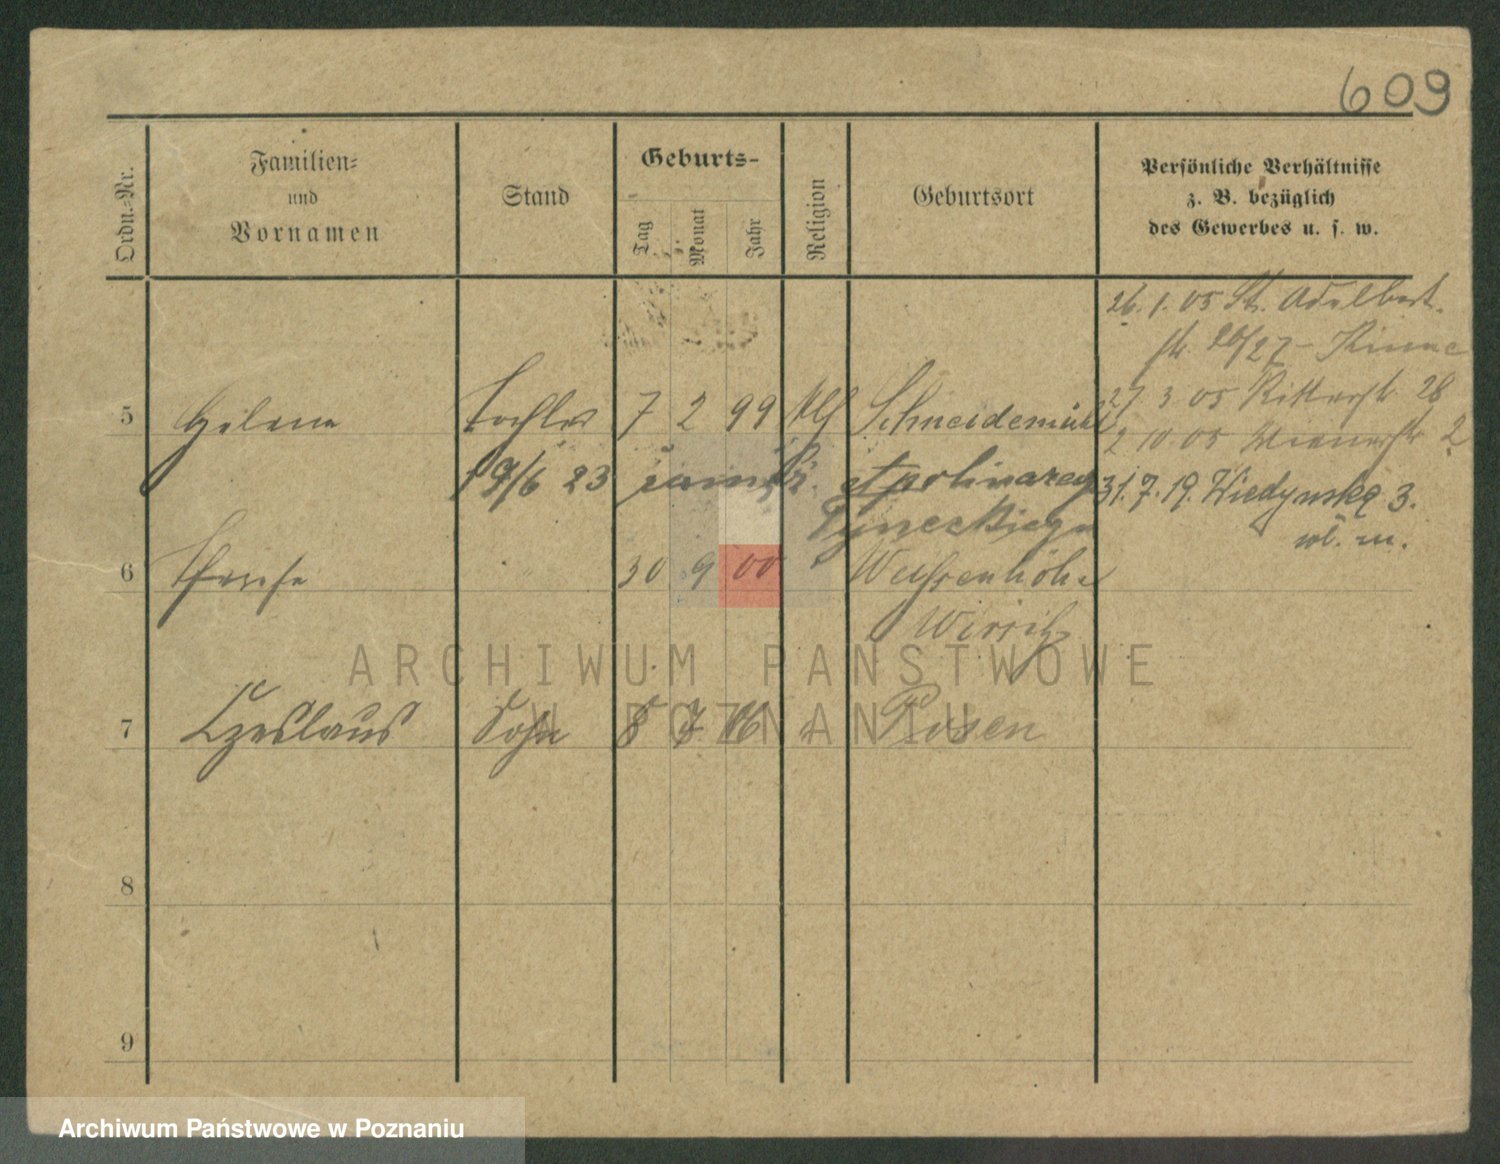 609
Ordn.-Nr.
Familien-
und
Vornamen
Stand
Geburts-
Tag
Monat
Jahr
Religion
Geburtsort
Persönliche Verhältnisse
z. B. bezüglich
des Gewerbes u. s. w.
26. 1. 05 St. Adalbert
str 26/27 –
5 Helene Tochter 7 2 99 Schneidemühl
27 3 05 Ritterstr 28
2 10 05 Wienerstr 2
19/6 23 zamęż. Apolinarego
31. 7. 19. Wiedyńska 3.
wł. m.
6 Therese 30 9 00 Weissenhöhe
Wirsitz
7 Czeslaus Sohn 8 7 Posen
8
9
ARCHIWUM PAŃSTWOWE
W POZNANIU
Archiwum Państwowe w Poznaniu